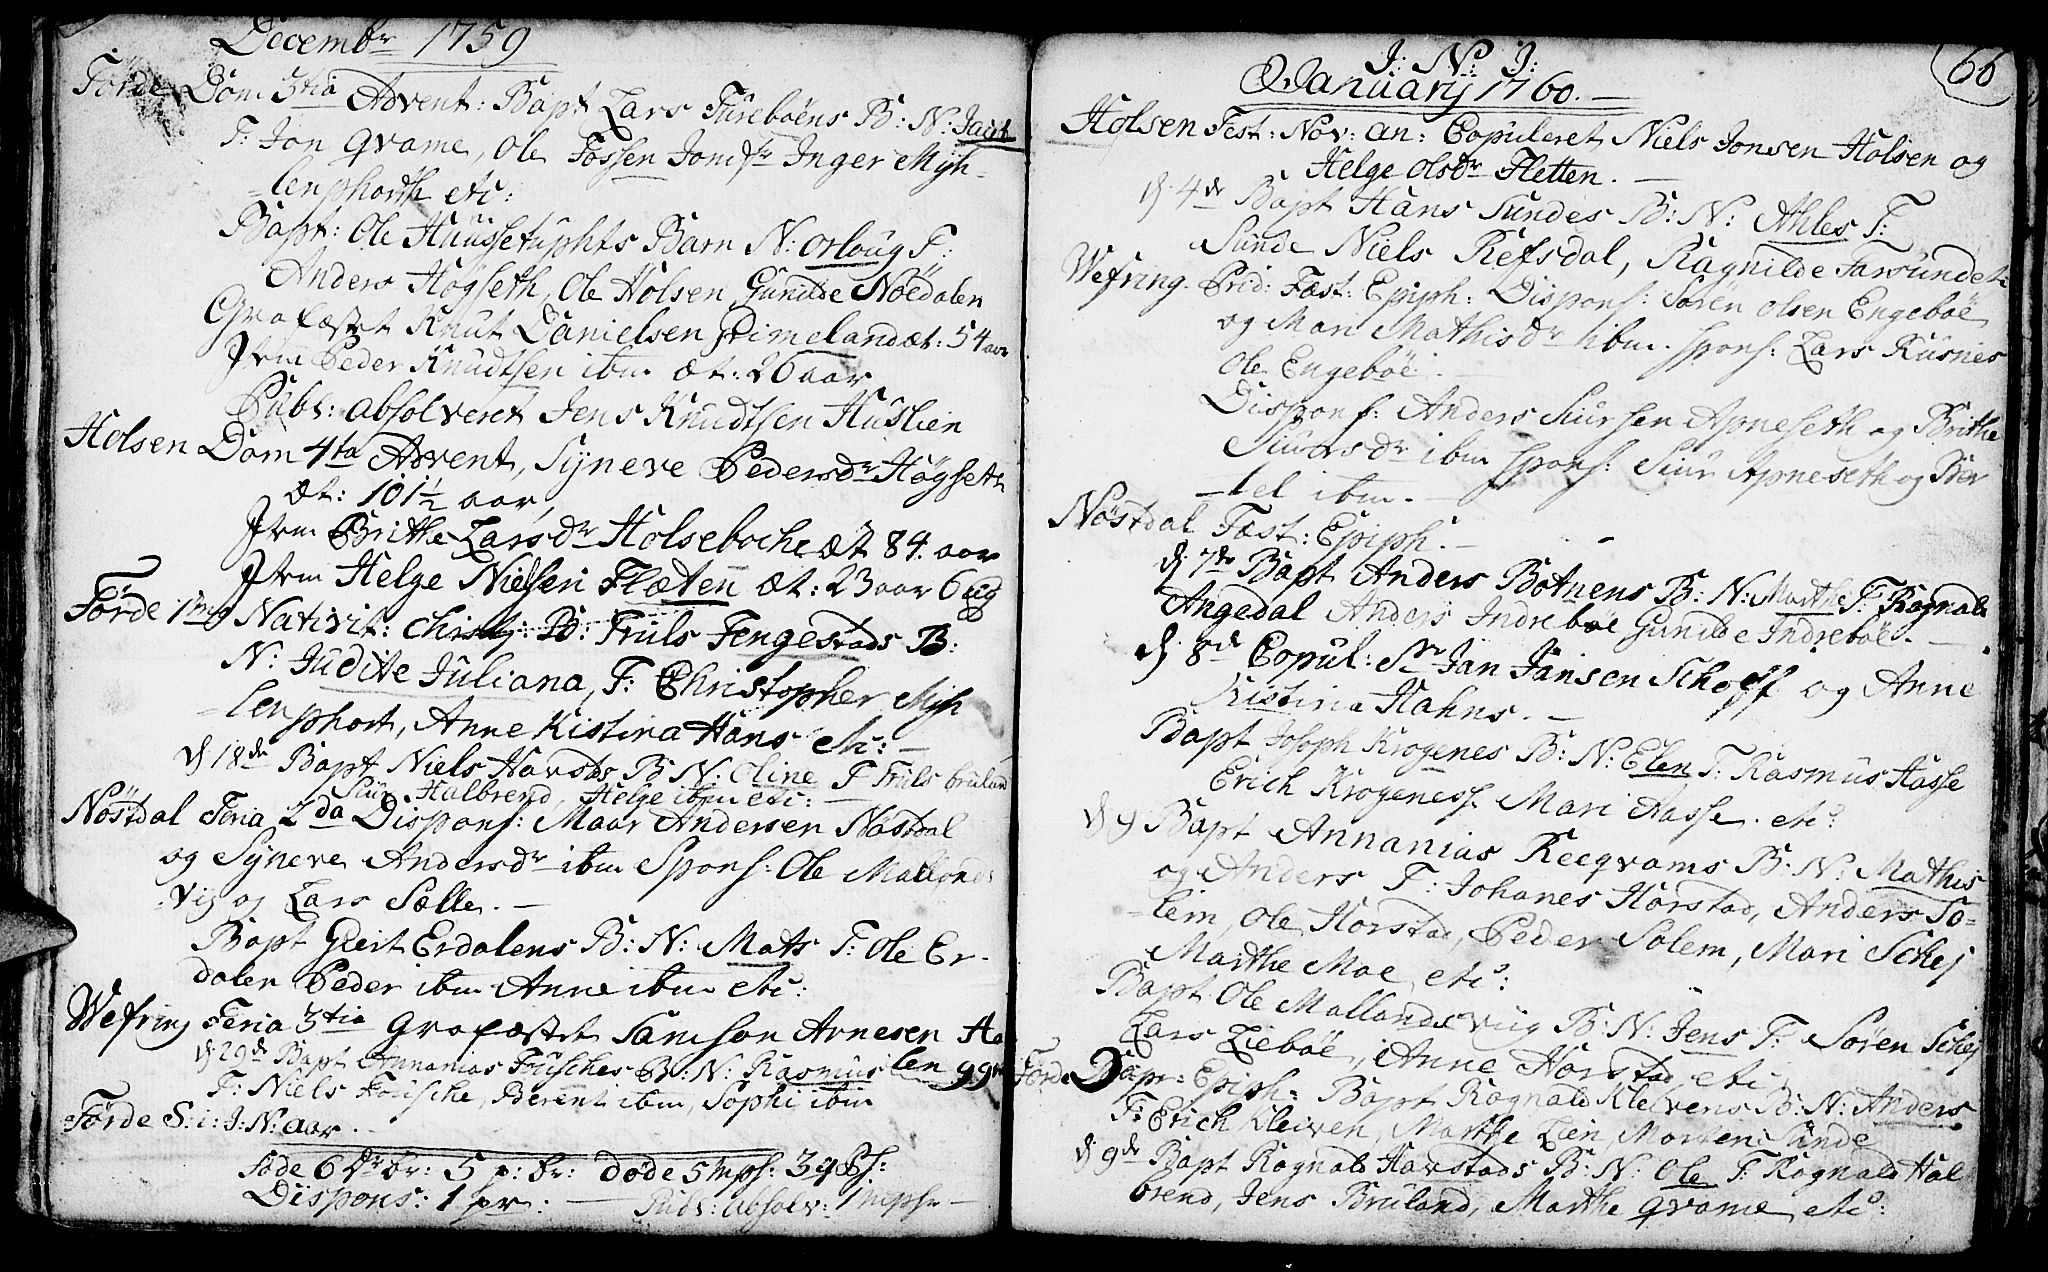 Decembr 1759
Förde Dom 3tia Advent: Bapt Lars Füreböens B: N: Jacob
F: Jon Qvame, Ole Fossen Jomfr Inger Myh-
lenphorth etc:
Bapt: Ole Huussetuphts Barn N: Orloug F:
Anders Högseth, Ole Holsen Gunilde Nöedalen
Grafæstet Knut Danielsen Grimeland æt: 54 aar
Item Peder Knudtsen ibm æt: 26 aar
Publ: absolveret Jens Knudtsen Huslien
Holsen Dom 4ta Advent, Syneve Pedersdr Högseth
æt: 101½ aar,
Item Brithe Larsdr Holseboche æt 84. aar
Item Helge Nielsen Flæten æt: 23 aar 6 ug
Förde 1ma Nativit: Christj: B: Truls Fengestads B:
N: Judite Juliana, F: Christopher Myh
lenphort, Anne Kistina Hans etc: —
d 18de Bapt Niels Harstas B N: Oline F Truls bruland
Siur Halbrend, Helge ibm etc: —
Nöstdal Feria 2da Dispons: Maar Andersen Nöstdal
og Syneve Andersdr ibm Spons: Ole Mallands
vig og Lars Sælle. —
Bapt Geit Erdalens B: N: Mats F: Ole Er-
dalen Peder ibm Anne ibm etc:
Wefring Feria 3tia Grafæstet Samson Arnesen Ha
len 99
d. 29de Bapt Annanias Frusches B: N: Rasmus
F: Niels Frusche, Berent ibm, Sophi ibm
Förde S: i: J: N: aar.
Föde 6 Dr br: 5 p: br: döde 5 mps: 3 qPs:
Dispons: 1 pr: — Publ: absolv: 1 mephr —
66
J: N: J:
January 1760. —
Holsen Fest: Nov: an: Copuleret Niels Jonsen Holsen og
Helge Olsdr Fletten. —
d. 4de Bapt Hans Sundes B: N: Ahles F:
Sunde Niels Refsdal, Ragnilde Farsundet
Wefring. Prid: Fæst: Epiph: Dispons: Sören Olsen Engeböe
og Mari Mathisdr ibm. spons: Lars Rusnes
Ole Engeböe. —
Dispons: Anders Siursen Apneseth og Brithe
Siursdr ibm spons: Siur Apneseth og Ber
tel ibm. —
Nöstdal Fæst: Epiph: —
d. 7de Bapt Anders Botnens B: N: Marthe F: Rognald
Angedal Anders Indreböe Gunilde Indreböe. —
d. 8de Copul: Sr Jan Jansen Schoff og Anne
Kistina Hahns. —
Bapt Joseph Krogenes B: N: Elen F: Rasmus Hasse
Erich Krogeness. Mari Hasse. etc:
d 9 Bapt Annanias Reeqvams B: N: Mathis
og Anders F: Johanes Horstad, Anders So-
lem, Ole Horstad, Peder Solem, Mari Schej
Marthe Moe, etc:
Bapt Ole Mallandsvug B: N: Jens F: Sören Schej
Lars Lieböe, Anne Horstad, etc
Förde Epiph: Bapt Rognald Kleivens B: N: Anders
F: Erich Kleiven, Marthe Lien, Morten Sunde
d. 9de Bapt Rognald Harstads B: N: Ole F: Rognald Hal
brend, Jens Bruland, Marthe Qvame, etc: